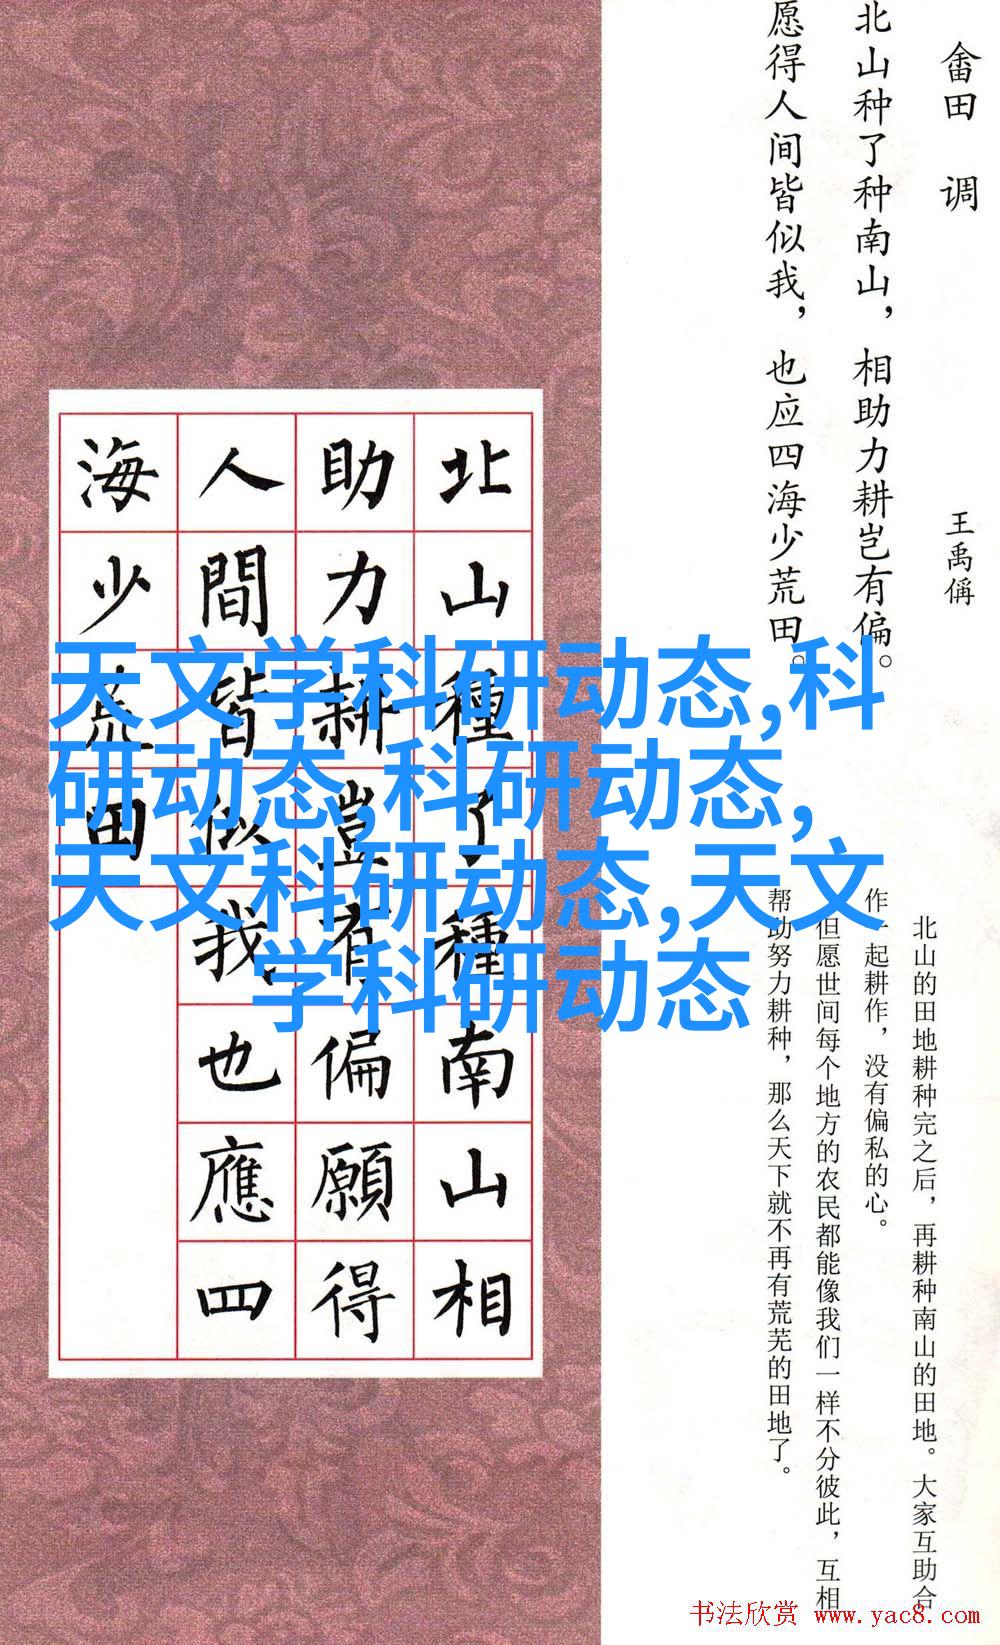 畲田 调
王禹偁
北山种了种南山，相助力耕岂有偏。
愿得人间皆似我，也应四海少荒田。
北山的田地耕种完之后，再耕种南山的田地。大家互助合
作一起耕作，没有偏私的心。
但愿世间每个地方的农民都能像我们一样不分彼此，互相
帮助努力耕种，那么天下就不再有荒芜的田地了。
北山種了種南山相
助力耕豈有偏願得
人間皆似我也應四
海少荒田
天文学科研动态,科
研动态,科研动态,
天文科研动态,天文
学科研动态
书法欣赏 www.yac8.com